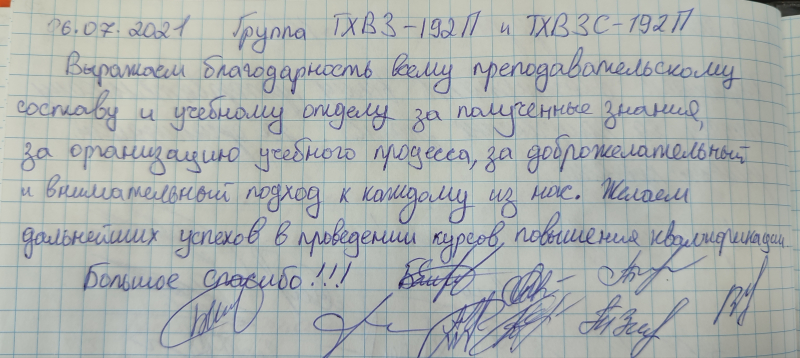 16.07.2021 Группа ТХВЗ-192П и ТХВЗС-192П
Выражаем благодарность всему преподавательскому
составу и учебному отделу за полученные знания,
за организацию учебного процесса, за доброжелательный
и внимательный подход к каждому из нас. Желаем
дальнейших успехов в проведении курсов, повышения квалификации.
Большое спасибо!!!